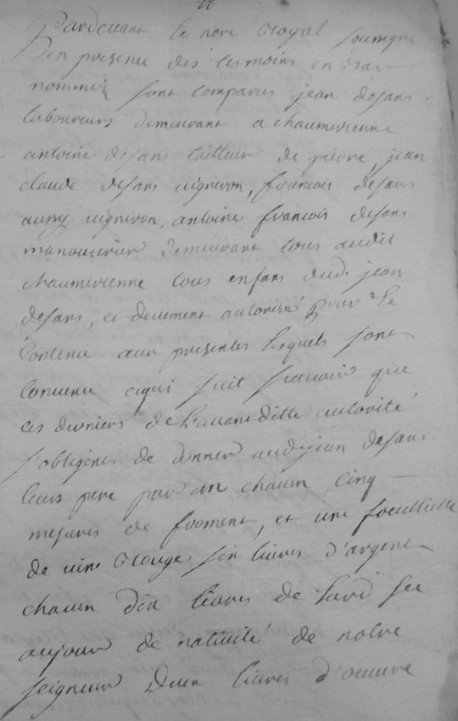 Pardevant le nore Royal soussigne
en presence des tesmoins en bas
nommez sont comparus jean desans
laboureurs demeurant a chaumercenne
antoine desans tailleur de pierre, jean
claude desans vigneron, francois desans
aussy vigneron, antoine francois desans
manouvrier demeurant tous audit
chaumercenne tous enfans dud. jean
desans, et deuement autorisé pour le
contenu aux presentes lesquels sont
convenu ce qui suit scavoir que
ces derniers de l'avanditte autorité
s'obligent de donner audjean desans
leurs pere par an chacun cinq
mesures de froment, et une feuillette
de vin Rouge six livres d'argent
chacun dix livres de lard sec
aujour de nativité de nostre
seigneur deux livres d'oeuvre